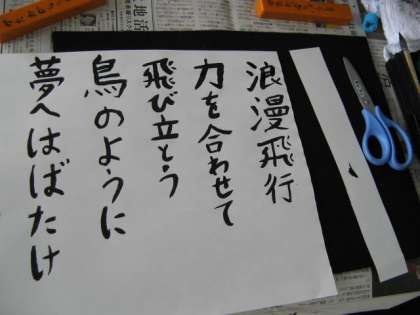 浪漫飛行
力を合わせて
飛び立とう
鳥のように
夢へはばたけ